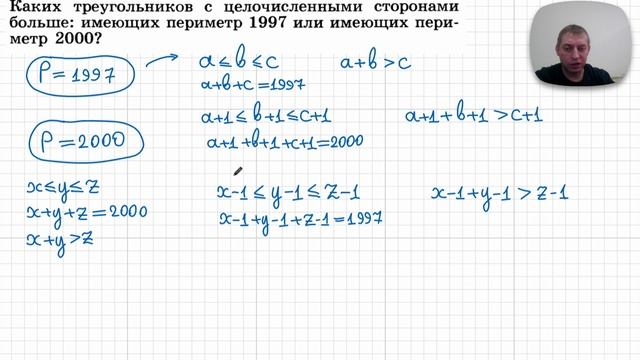 Каких треугольников с целочисленными сторонами
больше: имеющих периметр 1997 или имеющих пери-
метр 2000?
P = 1997
a ≤ b ≤ c
a + b > c
a+b+c = 1997
a+1 ≤ b+1 ≤ c+1
a+1+b+1 > c+1
P = 2000
a+1+b+1+c+1 = 2000
x ≤ y ≤ z
x-1 ≤ y-1 ≤ z-1
x-1+y-1 > z-1
x+y+z = 2000
x-1+y-1+z-1 = 1997
x+y > z